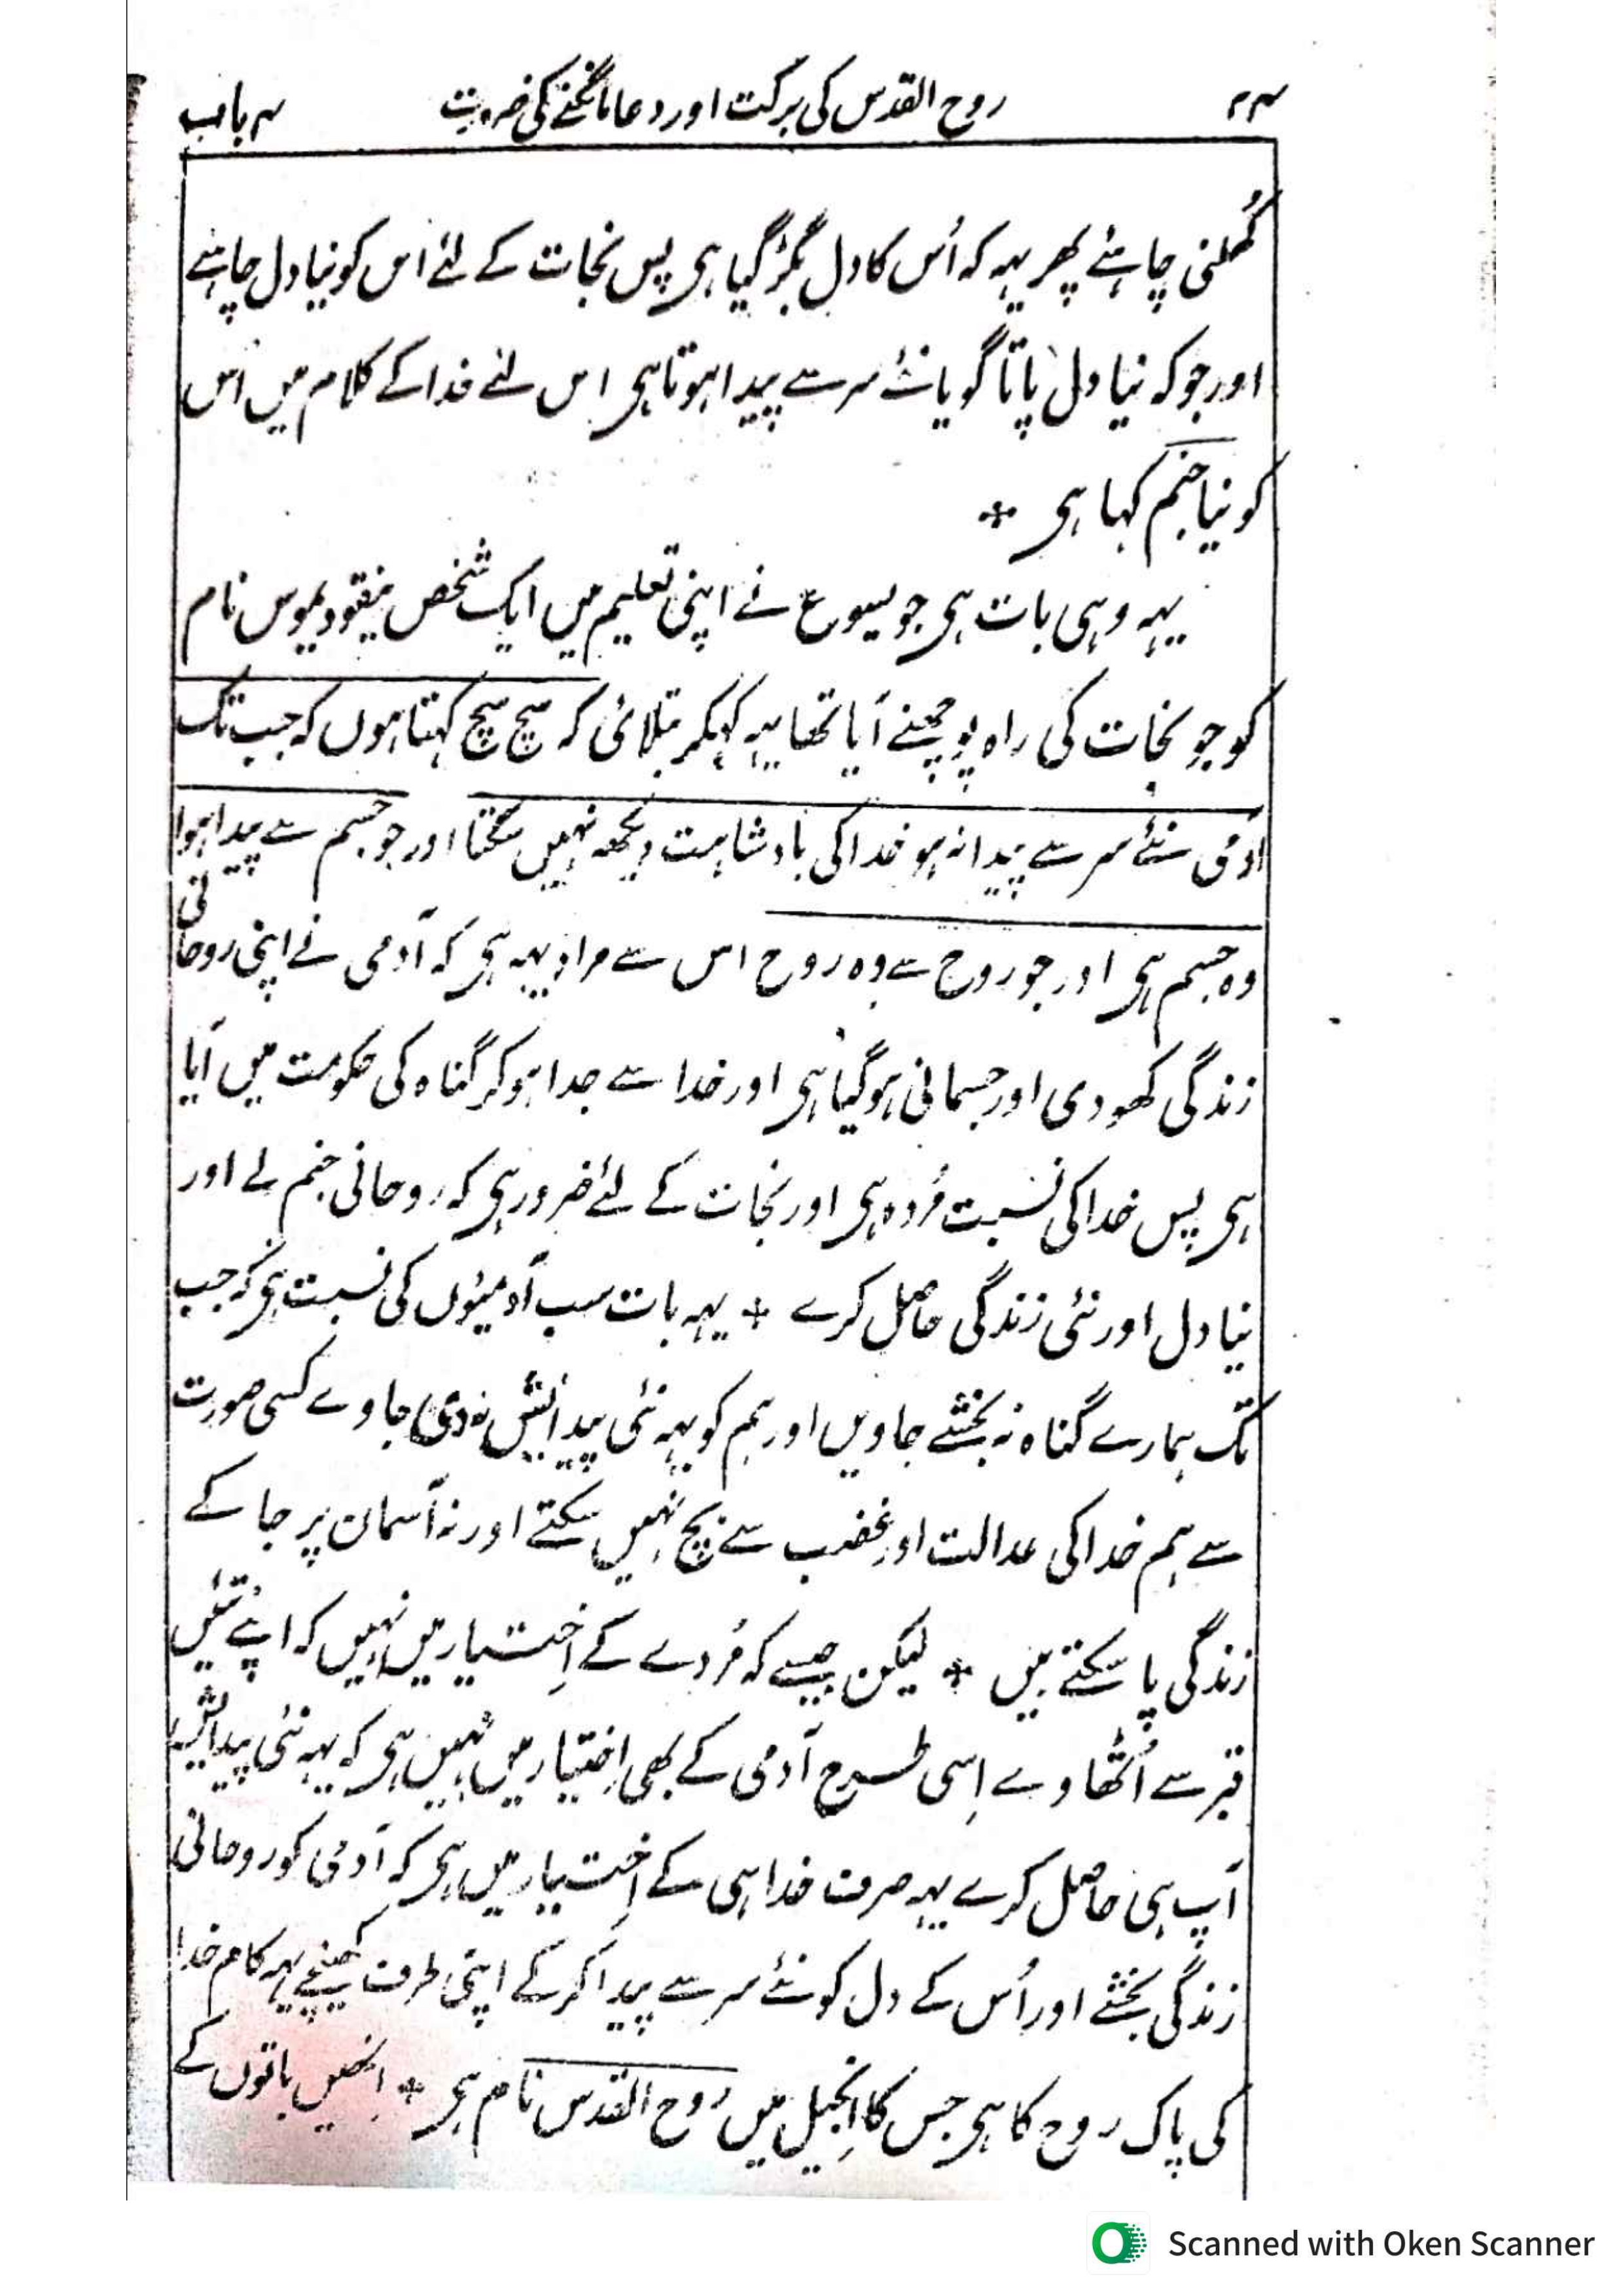 ۲۴ روح القدس کی برکت اور دعا مانگنے کی ضرورت ۴ باب
کُھلنی چاہئے پھر یہہ کہ اُس کا دل بگڑ گیا ہی پس نجات کے لئے اس کو نیا دل چاہئے
اور جو کہ نیا دل پاتا گویا نئے سر سے پیدا ہوتا ہی اس لئے خدا کے کلام میں اُس
کو نیا جنم کہا ہی ٭
یہہ وہی بات ہی جو یسوع نے اپنی تعلیم میں ایک شخص نیقودیموس نام
کو جو نجات کی راہ پوچھنے آیا تھا یہہ کہکر بتلائی کہ سچ سچ کہتا ہوں کہ جب تک
آدمی نئے سر سے پیدا نہ ہو خدا کی بادشاہت دیکھہ نہیں سکتا اور جو جسم سے پیدا ہوا
وہ جسم ہی اور جو روح سے وہ روح اس سے مراد یہہ ہی کہ آدمی نے اپنی روحانی
زندگی کھودی اور جسمانی ہوگیا ہی اور خدا سے جدا ہوکر گناہ کی حکومت میں آیا
ہی پس خدا کی نسبت مُردہ ہی اور نجات کے لئے ضرور ہی کہ روحانی جنم لے اور
نیا دل اور نئی زندگی حاصل کرے ٭ یہہ بات سب آدمیئوں کی نسبت ہی کہ جب
تک ہمارے گناہ نہ بخشے جاویں اور ہم کو یہہ نئی پیدایش نہ دی جاوے کسی صورت
سے ہم خدا کی عدالت اور غضب سے بچ نہیں سکتے اور نہ آسمان پر جا کے
زندگی پا سکتے ہیں ٭ لیکن جیسے کہ مُردے کے اِختیار میں نہیں کہ اپنے تئیں
قبر سے اُٹھاوے اِسی طرح آدمی کے بھی اِختیار میں نہیں ہی کہ یہہ نئی پیدایش
آپ ہی حاصل کرے یہہ صرف خدا ہی کے اِختیار میں ہی کہ آدمی کو روحانی
زندگی بخشے اور اُس کے دل کو نئے سر سے پیدا کر کے اپنی طرف کھینچے یہہ کام خدا
کی پاک روح کا ہی جس کا اِنجیل میں روح القدس نام ہی ٭ اِنھیں باتوں کے
Scanned with Oken Scanner